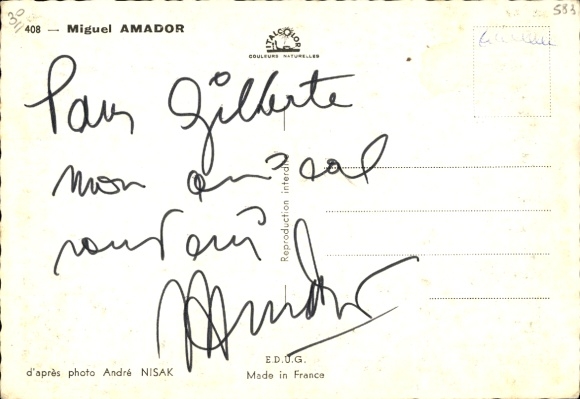 30
583
408 — Miguel AMADOR
ITALCOLOR
COULEURS NATURELLES
Pour Gilberte
mon amical
souvenir
Amador
Reproduction interdite
E.D.U.G.
d'après photo André NISAK
Made in France